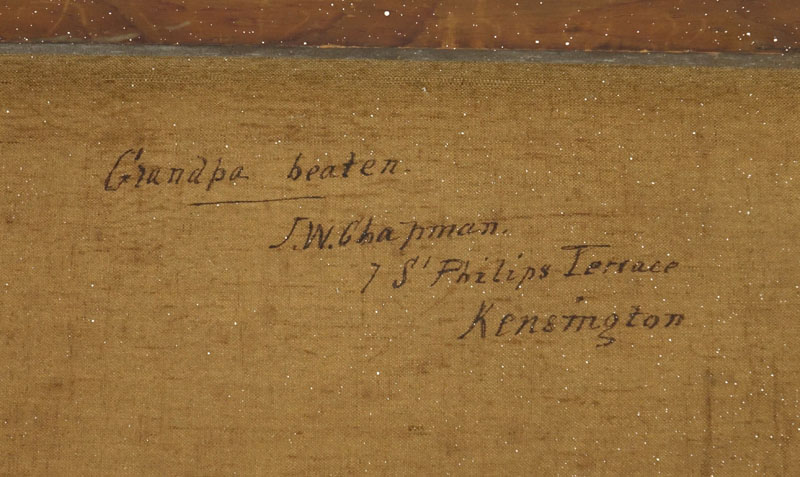 Grandpa beaten.
J.W. Chapman.
7 St Philips Terrace
Kensington